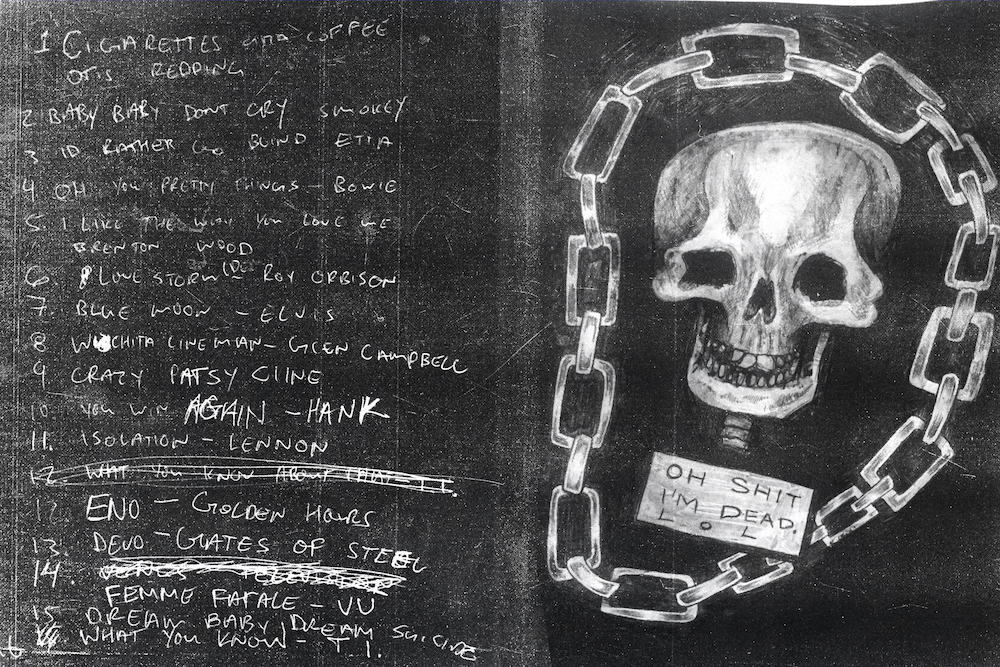 1 CIGARETTES AND COFFEE
OTIS REDDING
2 BABY BABY DONT CRY SMOKEY
3 ID RATHER GO BLIND ETTA
4 OH YOU PRETTY THINGS - BOWIE
5. I LIKE THE WAY YOU LOVE ME
BRENTON WOOD
6. LOVE STORM - ROY ORBISON
7. BLUE MOON - ELVIS
8 WICHITA LINEMAN - GLEN CAMPBELL
9 CRAZY PATSY CLINE
10. YOU WIN AGAIN - HANK
11. ISOLATION - LENNON
12. WHAT YOU KNOW ABOUT THAT - T.I.
12. ENO - GOLDEN HOURS
13. DEVO - GATES OF STEEL
14.
FEMME FATALE - VU
15. DREAM BABY DREAM SUICIDE
WHAT YOU KNOW - T.I.
OH SHIT
I'M DEAD.
L O L